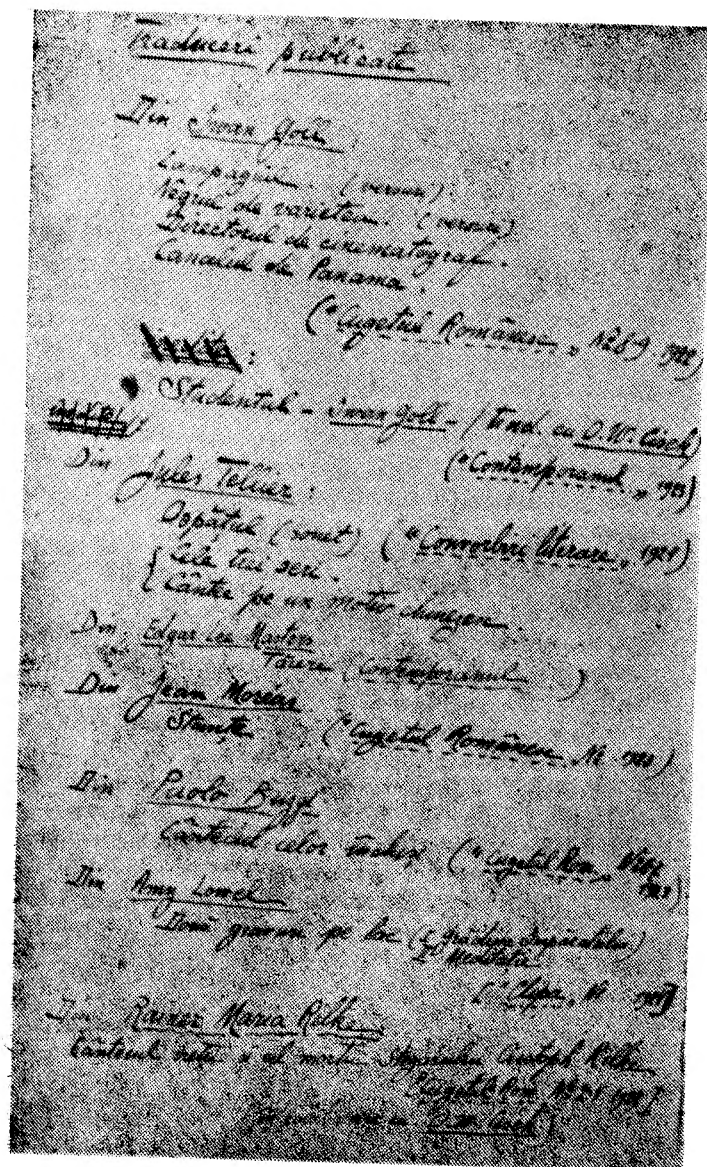 Traduceri publicate
Din Iwan Goll:
Campagna. (versuri).
Negrul de varieteu. (versuri)
Directorul de cinematograf.
Canalul de Panama.
("Cugetul Românesc" N 8-9. 1922)
Studentul - Iwan Goll - (trad. cu O.W. Cisek)
("Contemporanul" 1923)
Din Jules Tellier:
Ospățul (sonet) ("Convorbiri literare, 1921)
Cele trei seri.
Cântec pe un motiv chinezesc.
Din Edgar Lee Masters
(Contemporanul )
Din Jean Moréas
Stanțe ("Cugetul Românesc, N. 1923)
Din Paolo Buzzi
Cântecul celor închiși ("Cugetul Rom.
Din Amy Lowel
Două gravuri pe loc (Grădina Împăratului)
("Clipa, N.
Din Rainer Maria Rilke
Cântecul vieții și al morții Stegarului Cristoph Rilke
"Cugetul Rom. N
O.W. Cisek